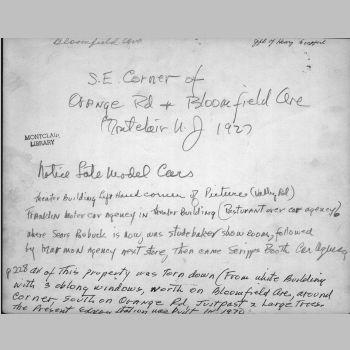 Bloomfield Ave
gift of Henry
S.E. Corner of
Orange Rd + Bloomfield Ave
Montclair N.J 1927
MONTCLAIR
LIBRARY
Notice Late Model Cars
theater Building Left Hand corner of Pictures (Valley Rd)
Franklin Motor car Agency in theater Building (Resturant over car agency)
where Sears Robuck is now was studebaker show room, followed
by Marmon Agency next store, then came Scripps Booth Car Agency
p228 all of This property was torn down (From white Building
with 3 oblong windows, north on Bloomfield Ave, around
Corner, south on Orange Rd, Just past 2 Large Trees
the Present station was Built in 1930